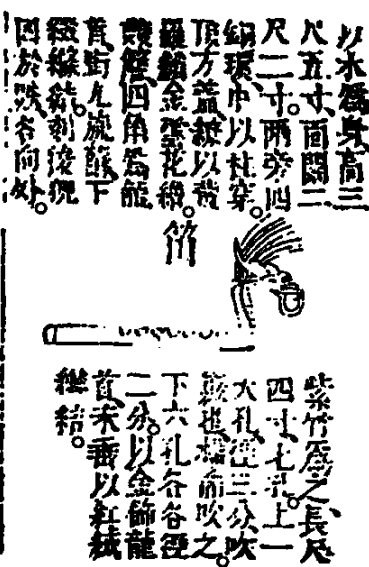 以木爲身高三
尺五寸面闊二
尺二寸兩旁四
銅環中以柱穿。
頂方蓋繚以黄
羅銷金雲花𢄙。
蓋四角爲龍
首銜九流蘇下
綴縧結。刺後猊
四於趺各向外。
笛
紫竹爲之長尺
四寸七孔上一
大孔徑三分吹
竅也橫而吹之。
下六孔各徑
二分以金飾龍
首末垂以紅絨
縧結。